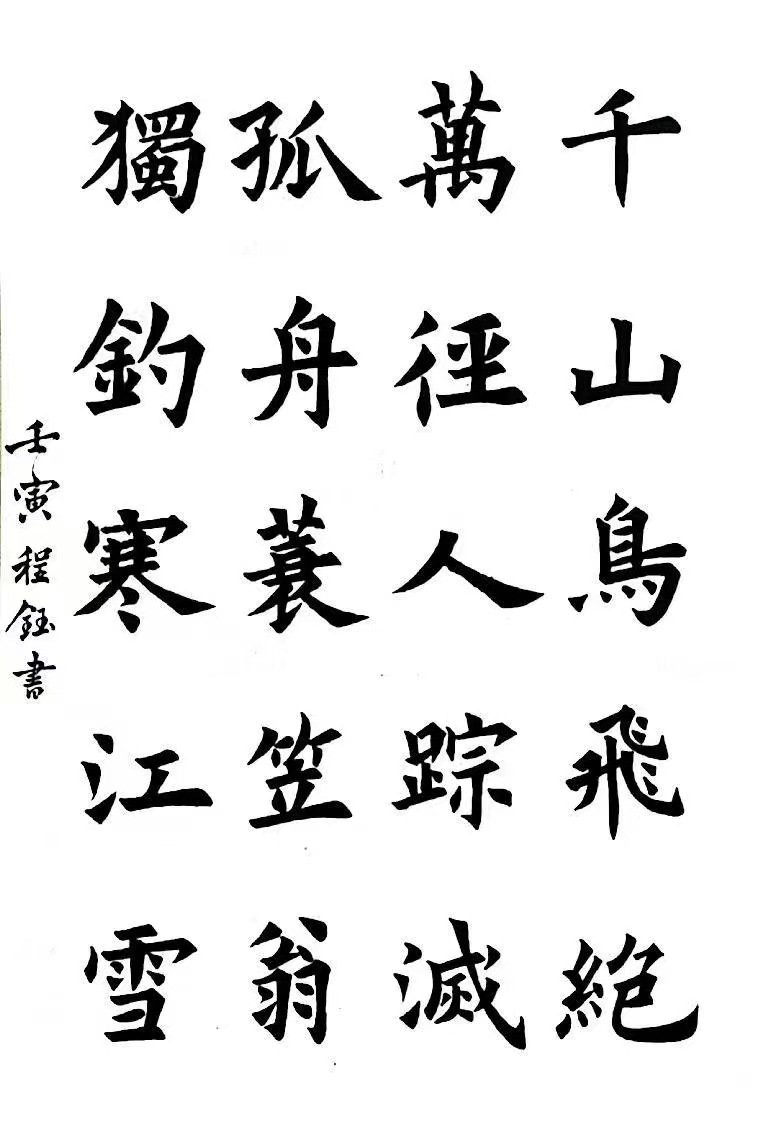 千山鳥飛絕
萬徑人踪滅
孤舟蓑笠翁
獨釣寒江雪
壬寅程鈺書